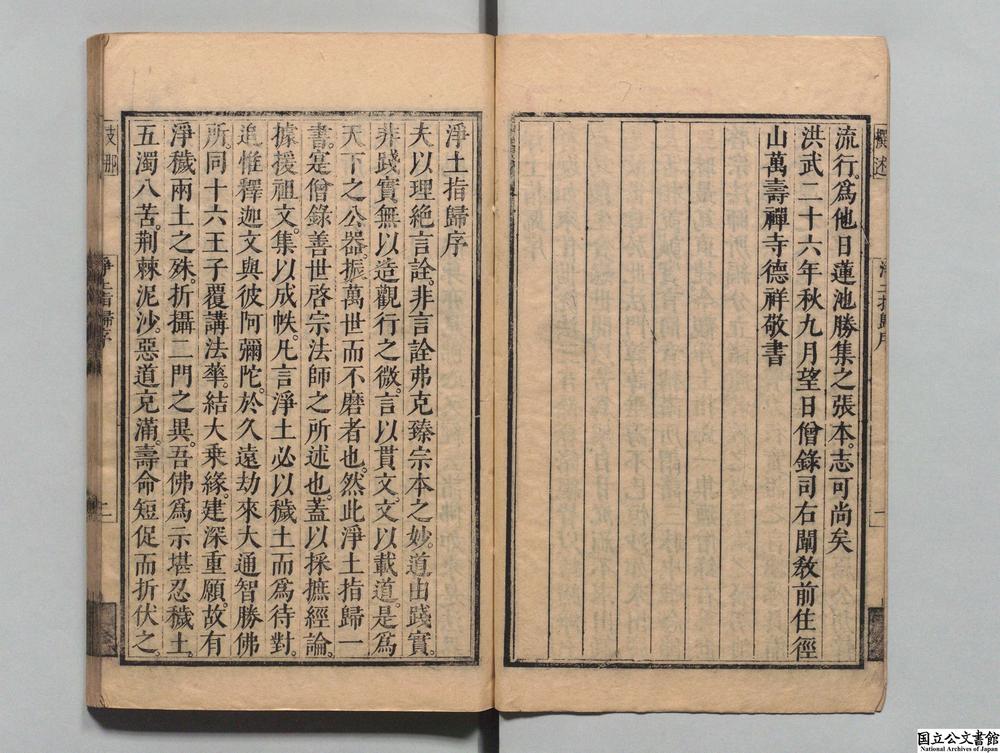 流行。爲他日蓮池勝集之張本。志可尚矣
洪武二十六年秋九月望日僧錄司右闡敎前住徑
山萬壽禪寺德祥敬書
淨土指歸序
夫以理絶言詮。非言詮弗克臻宗本之妙。道由踐實。
非踐實無以造觀行之微。言以貫文。文以載道。是爲
天下之公器。振萬世而不磨者也。然此淨土指歸一
書。寔僧錄善世啓宗法師之所述也。蓋以採摭經論。
據援祖文。集以成帙。凡言淨土必以穢土而爲待對。
追惟釋迦文與彼阿彌陀。於久遠劫來大通智勝佛
所。同十六王子覆講法華。結大乘緣。建深重願。故有
淨穢兩土之殊。折攝二門之異。吾佛爲示堪忍穢土。
五濁八苦。荆棘泥沙。惡道充滿。壽命短促而折伏之。
撰述
淨土指歸序
一
淨土指歸序
国立公文書館
National Archives of Japan